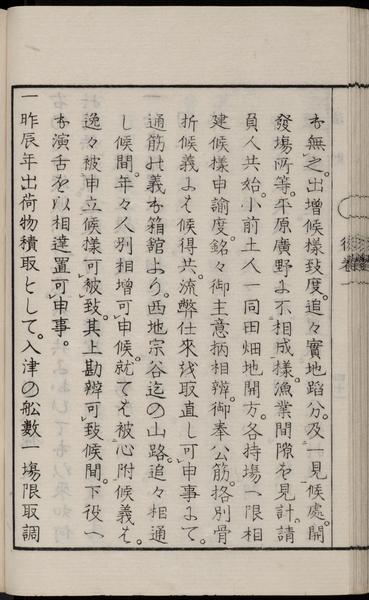 㔫無之。出増候様致度。追々實地踏分。及一見候處。開
發場所等。平原廣野ニ不相成様。漁業間隙を見計。請
負人共始。小前土人一同田畑地開方。各持場ヘ限相
建候様申諭度。銘々御主意柄相辨。御奉公筋。格別骨
折候義ニ者候得共。流弊仕來を取直し可申事ニて。
通筋之義者箱館より。西地宗谷迄の山路。追々相通
し候間。年々人別相増可申候。就てハ被心附候義ハ。
逸々被申立候様可被致。其上勘辨可致候間。下役ヘ
者演舌を以相達置可申事。
一昨辰年出荷物積取として。入津の舩數一場限取調